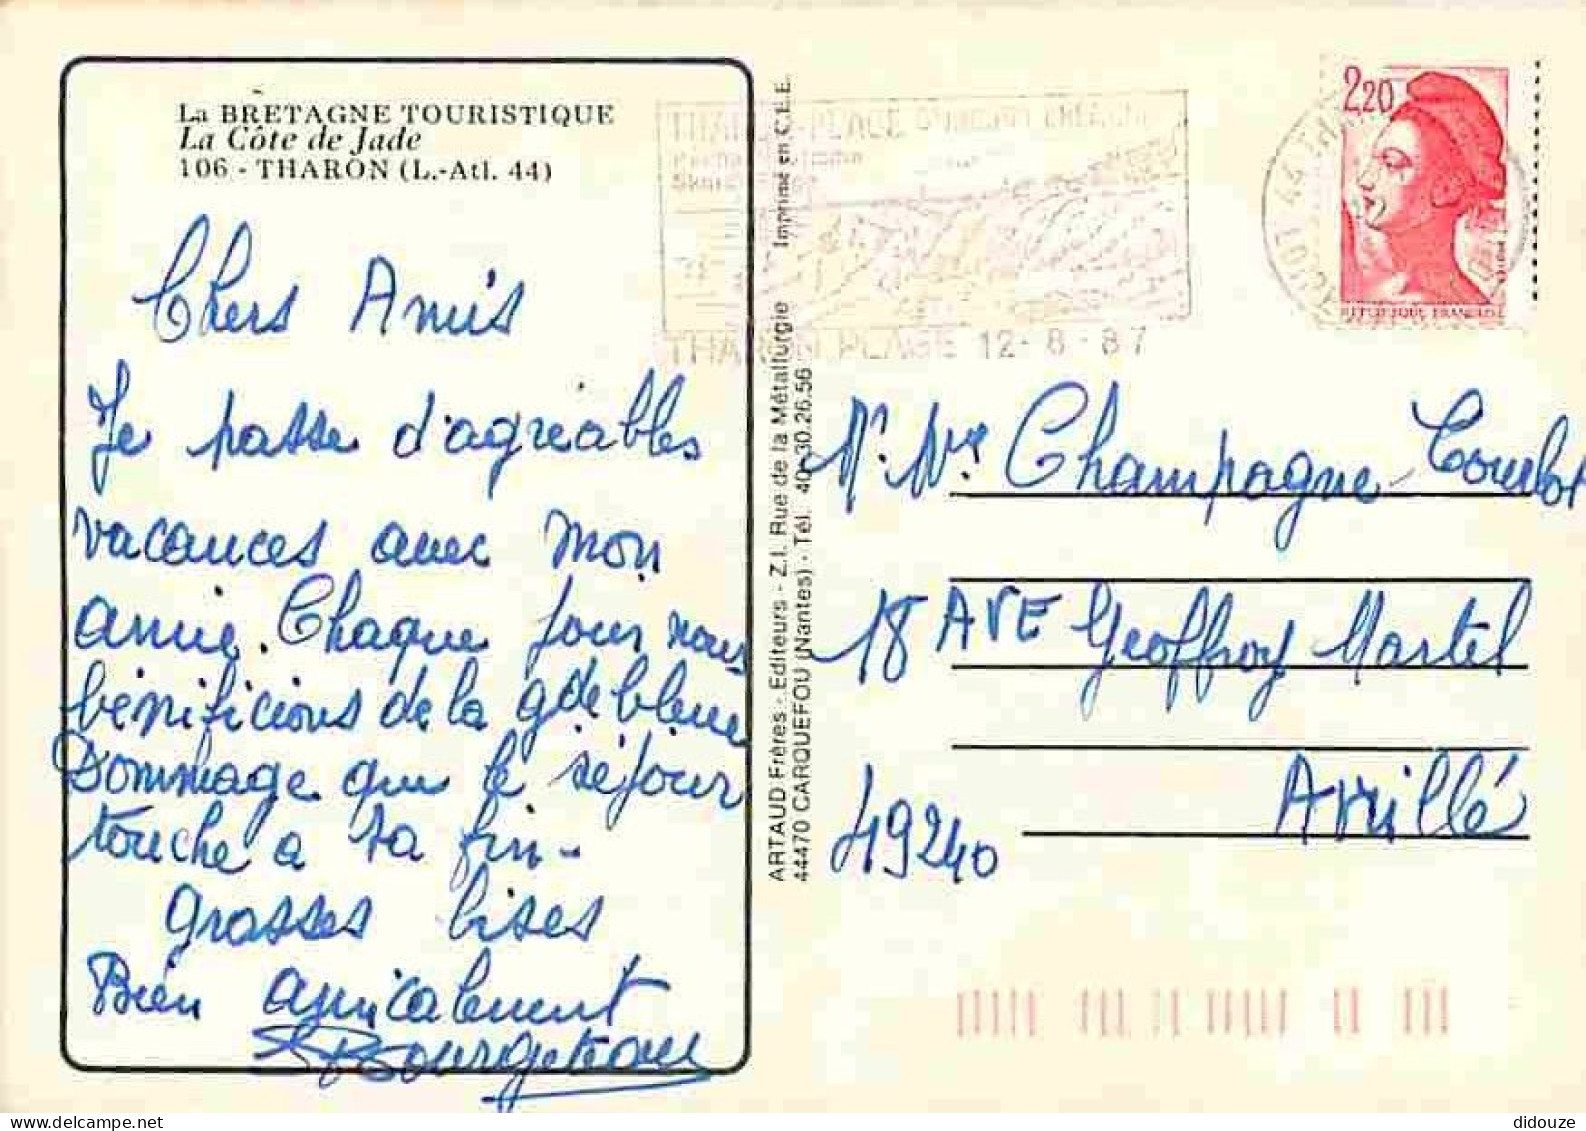 La BRETAGNE TOURISTIQUE
La Côte de Jade
106 - THARON (L.-Atl. 44)
Chers Amis
Je passe d'agréables
vacances avec mon
amie. Chaque jour nous
bénificions de la gde bleue
Dommage que le séjour
touche a sa fin -
Grosses bises
Bien amicalement
Bourgeteau
ARTAUD Frères - Editeurs - Z.I. Rue de la Métallurgie Imprimé en C.E.E.
44470 CARQUEFOU (Nantes) - Tél. 40.30.26.56
THARON PLAGE 12-8-87
2,20
REPUBLIQUE FRANCAISE
Mr Mme Champagne-Courbot
18 AVE Geoffroy Martel
49240 Avrillé
didouze